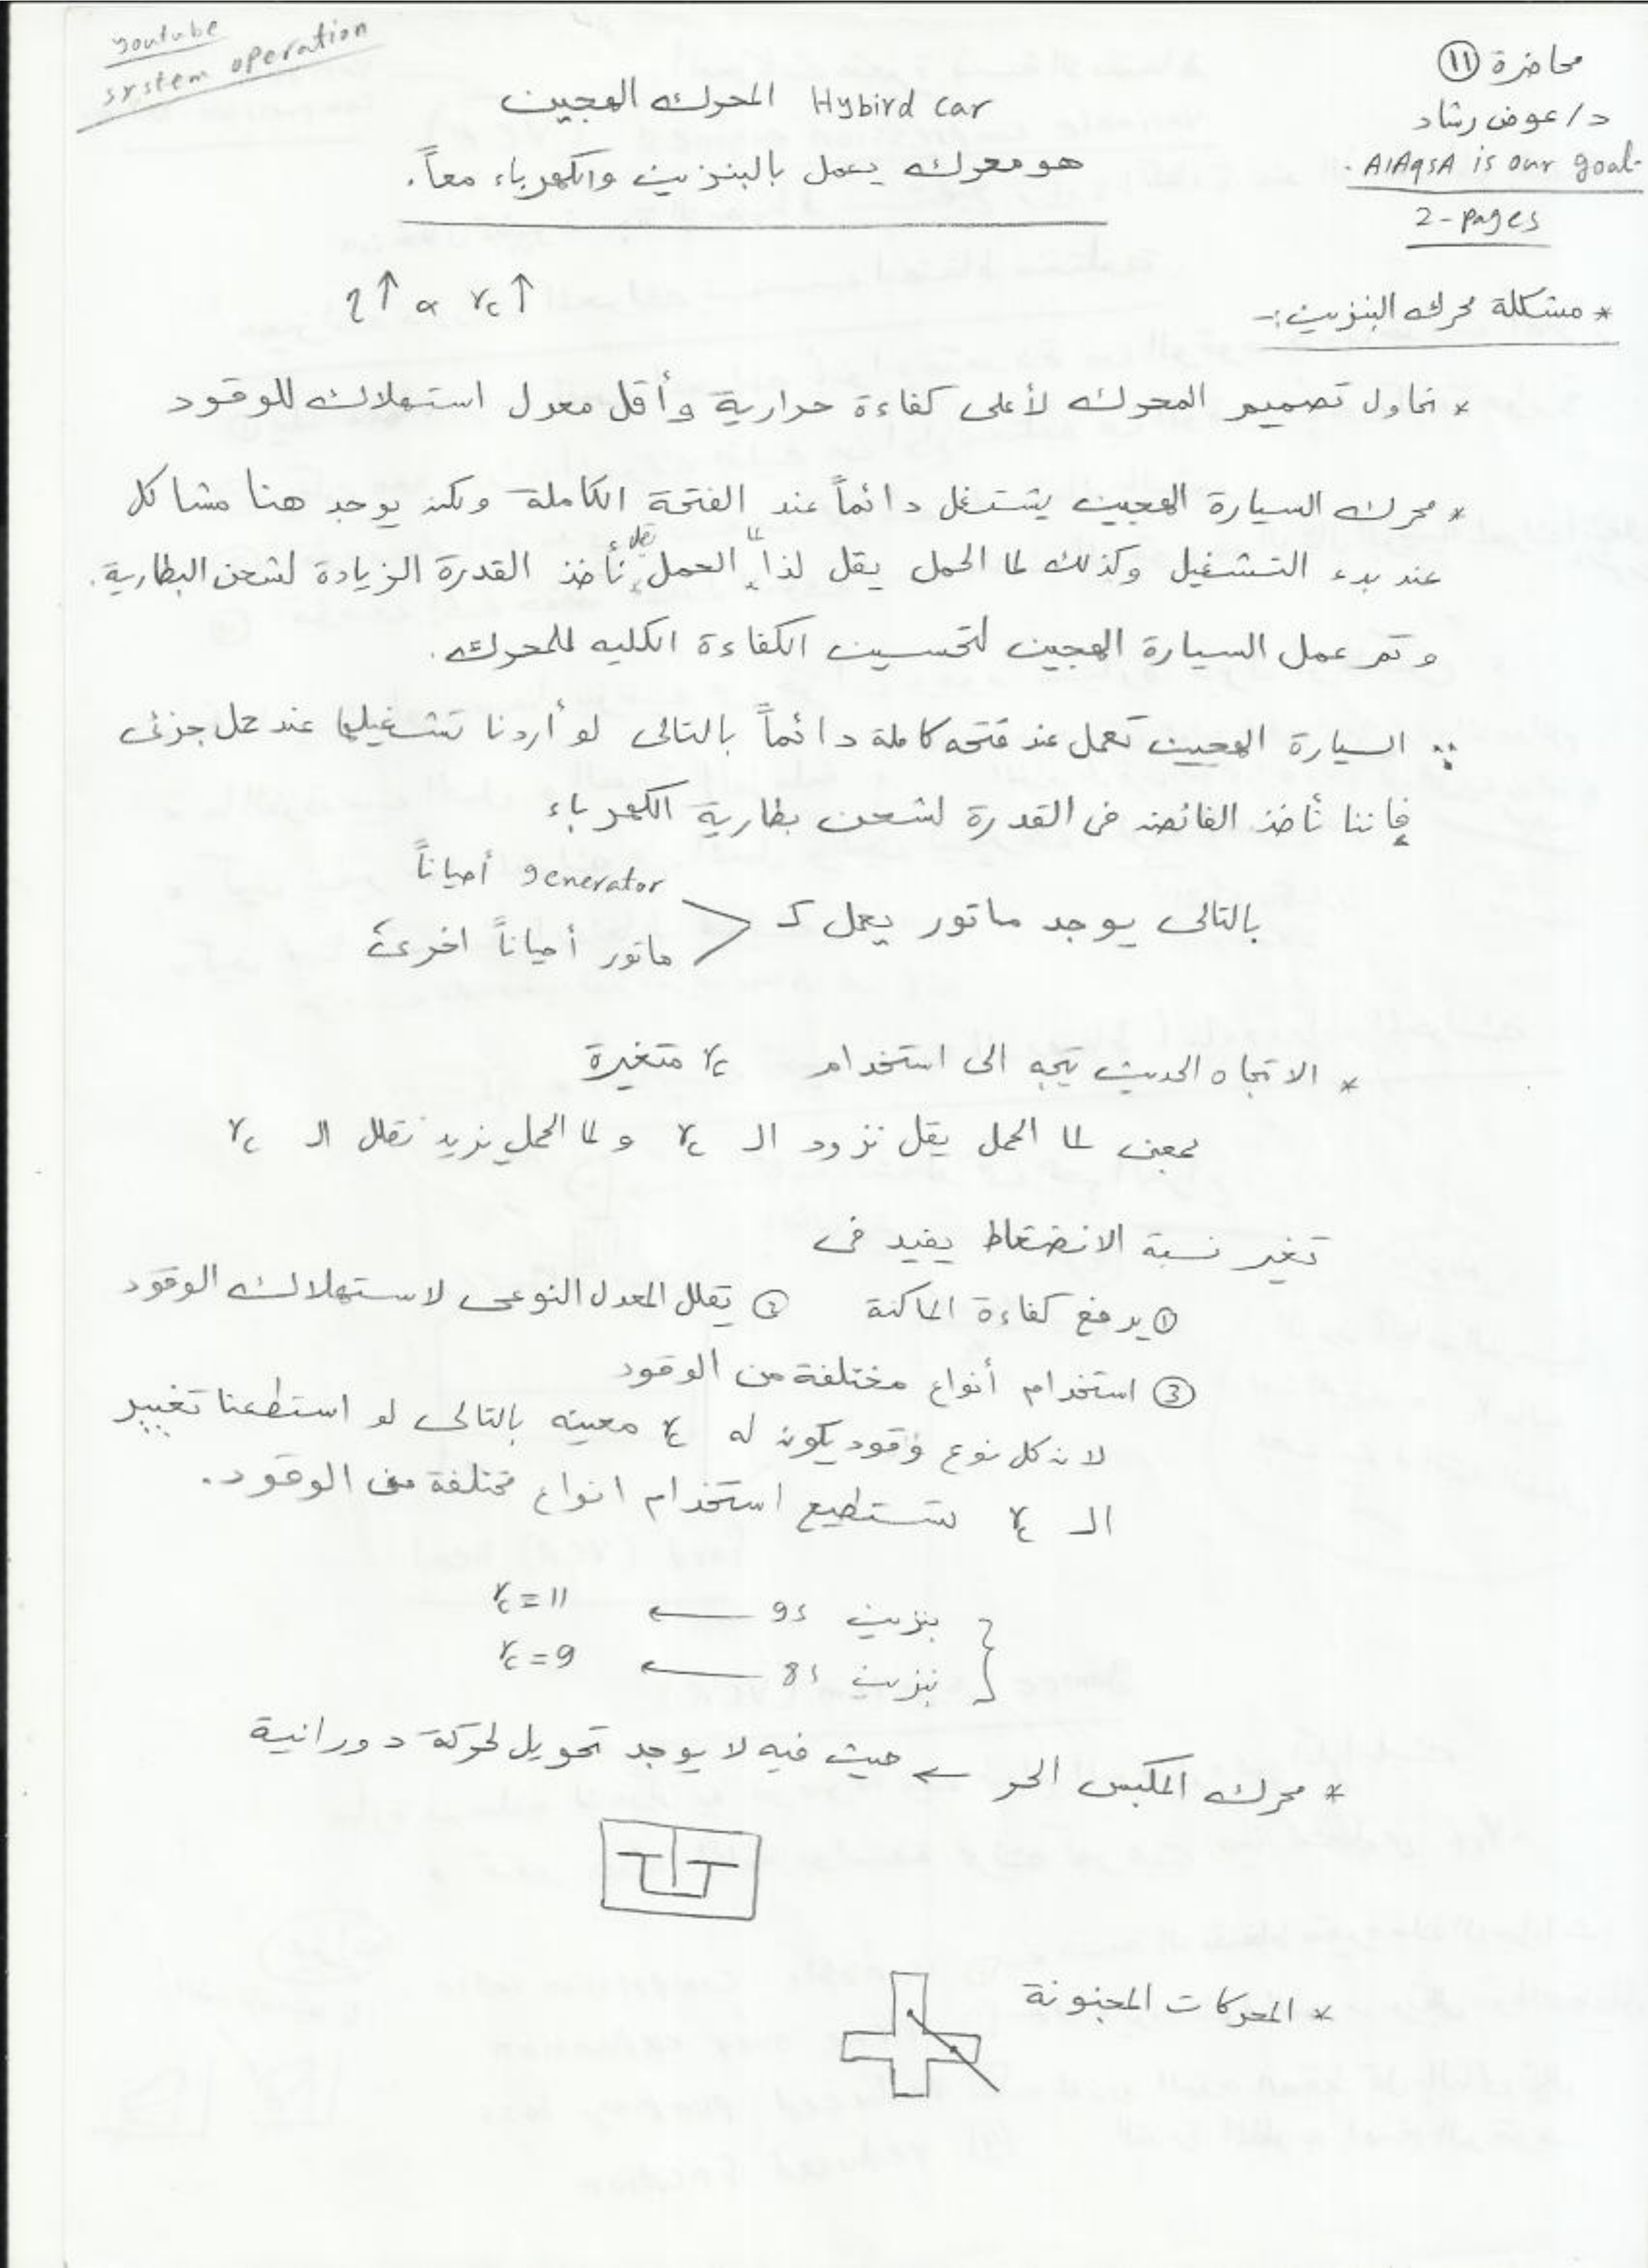 youtube
system operation
محاضرة ⑪
د/عوض رشاد
AlAqsA is our goal.
2-pages
المحرك الهجين Hybird car
هو محرك يعمل بالبنزين والكهرباء معاً.
* مشكلة محرك البنزين:-
η↑ α rc↑
* نحاول تصميم المحرك لأعلى كفاءة حرارية وأقل معدل استهلاك للوقود
* محرك السيارة الهجين يشتغل دائماً عند الفتحة الكاملة ولكن يوجد هنا مشاكل
عند بدء التشغيل وكذلك لما الحمل يقل لذا " الحمل نأخذ القدرة الزيادة لشحن البطارية.
وتم عمل السيارة الهجين لتحسين الكفاءة الكليه للمحرك.
∵ السيارة الهجين تعمل عند فتحه كاملة دائماً بالتالى لو أردنا تشغيلها عند حمل جزئى
فإننا نأخذ الفائض فى القدرة لشحن بطارية الكهرباء
بالتالى يوجد ماتور يعمل كـ
generator أحياناً
ماتور أحياناً اخرى
* الاتجاه الحديث يتجه الى استخدام rc متغيرة
بمعنى لما الحمل يقل نزود الـ rc و لما الحمل يزيد نقلل الـ rc
تغير نسبة الانضغاط يفيد فى
① يرفع كفاءة الماكنة ② يقلل المعدل النوعى لاستهلاك الوقود
③ استخدام أنواع مختلفة من الوقود
لان كل نوع وقود يكون له rc معينه بالتالى لو استطعنا تغيير
الـ rc نستطيع استخدام انواع مختلفة من الوقود.
بنزين 95 ← rc = 11
بنزين 85 ← rc = 9
* محرك المكبس الحر ← حيث فيه لا يوجد تحويل لحركة دورانية
* المحركات المجنونة